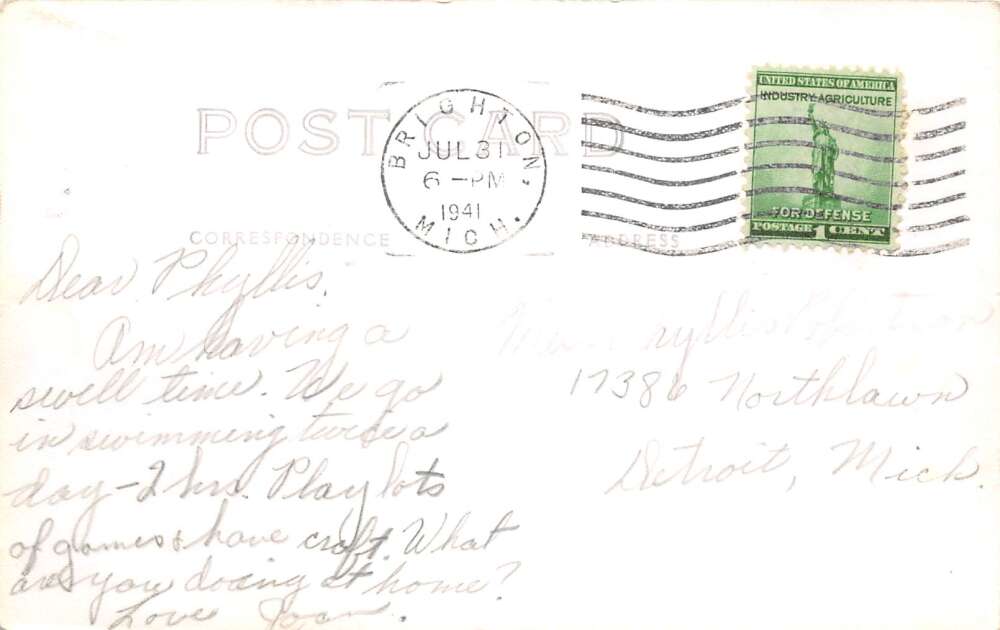 POST CARD
BRIGHTON,
JUL 31
6-PM
1941
MICH.
UNITED STATES OF AMERICA
INDUSTRY AGRICULTURE
FOR DEFENSE
POSTAGE 1 CENT
CORRESPONDENCE
ADDRESS
Dear Phyllis,
Am having a
swell time. We go
in swimming twice a
day - 2 hrs. Play lots
of games & have craft. What
are you doing at home?
Love Joan.
Phyllis
17386 Northlawn
Detroit, Mich.